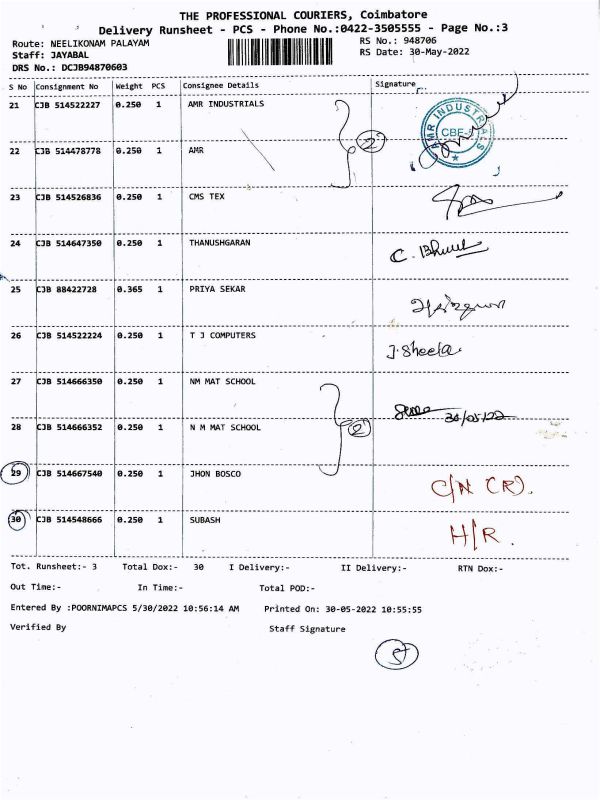 THE PROFESSIONAL COURIERS, Coimbatore
Delivery Runsheet - PCS - Phone No.:0422-3505555 - Page No.:3
Route: NEELIKONAM PALAYAM RS No.: 948706
Staff: JAYABAL RS Date: 30-May-2022
DRS No.: DCJB94870603
S No Consignment No Weight PCS Consignee Details Signature
21 CJB 514522227 0.250 1 AMR INDUSTRIALS
AMR INDUSTRIALS
CBE-5
2
22 CJB 514478778 0.250 1 AMR
23 CJB 514526836 0.250 1 CMS TEX
24 CJB 514647350 0.250 1 THANUSHGARAN
25 CJB 88422728 0.365 1 PRIYA SEKAR
26 CJB 514522224 0.250 1 T J COMPUTERS J. Sheela
27 CJB 514666350 0.250 1 NM MAT SCHOOL
30/05/22
28 CJB 514666352 0.250 1 N M MAT SCHOOL 2
29 CJB 514667540 0.250 1 JHON BOSCO C/N (R).
30 CJB 514548666 0.250 1 SUBASH H/R.
Tot. Runsheet:- 3 Total Dox:- 30 I Delivery:- II Delivery:- RTN Dox:-
Out Time:- In Time:- Total POD:-
Entered By :POORNIMAPCS 5/30/2022 10:56:14 AM Printed On: 30-05-2022 10:55:55
Verified By Staff Signature